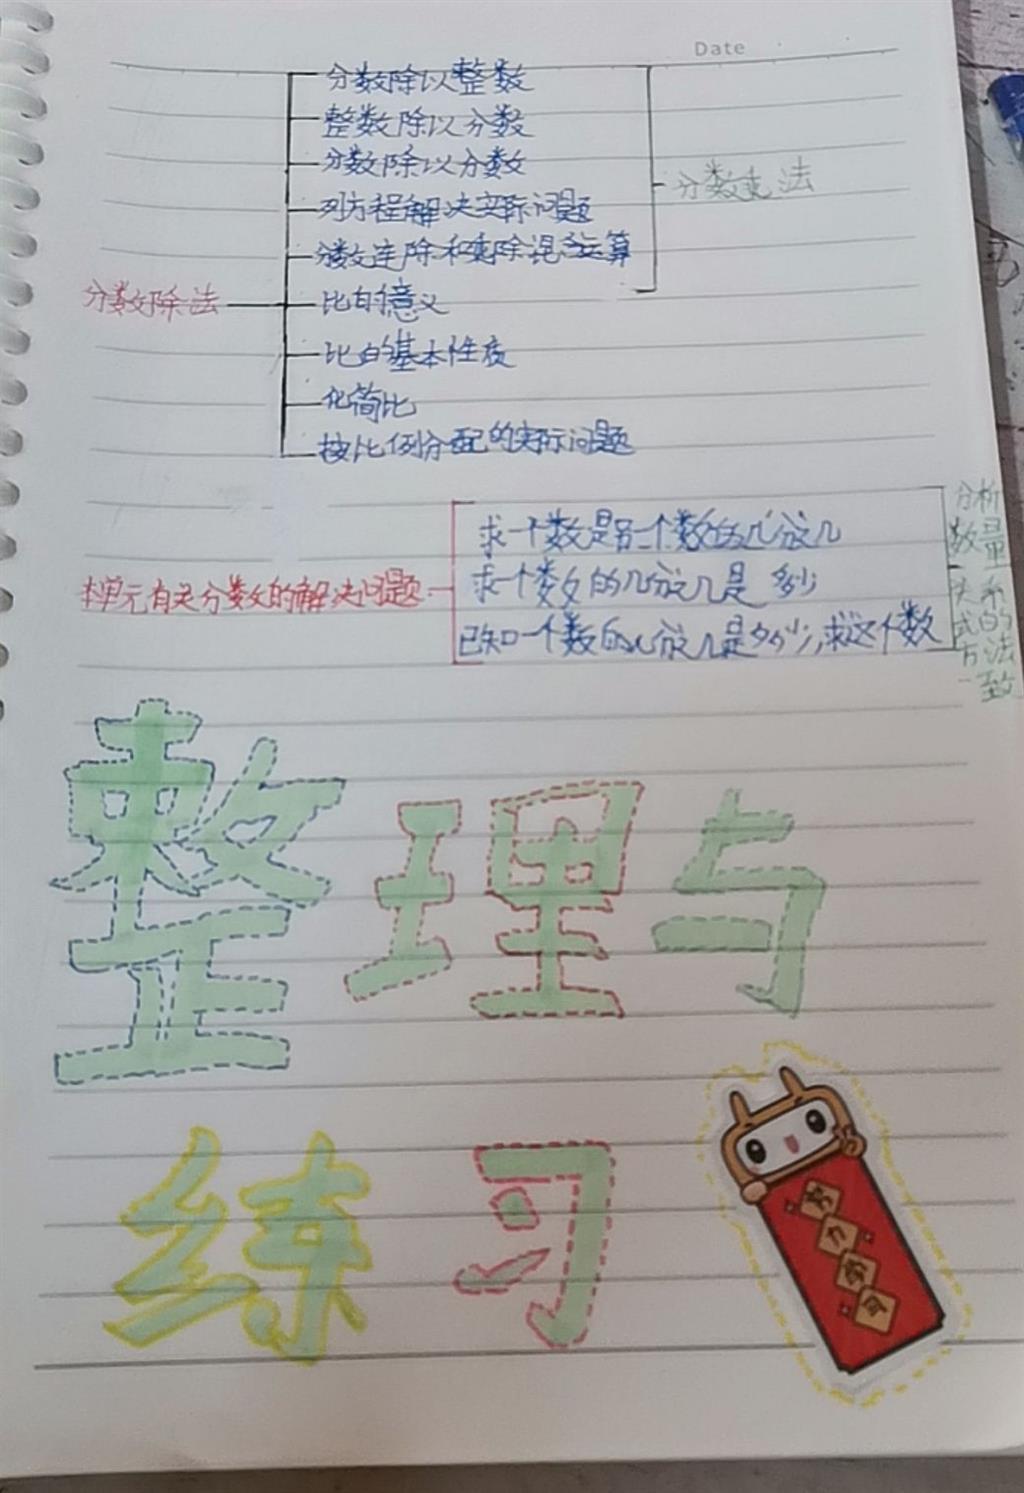 Date
分数除以整数
整数除以分数
分数除以分数
列方程解决实际问题
分数连除和乘除混合运算
分数乘法
分数除法
比的意义
比的基本性质
化简比
按比例分配的实际问题
本单元有关分数的解决问题
求一个数是另一个数的几分之几
求一个数的几分之几是多少
已知一个数的几分之几是多少,求这个数
分析
数量
关系
式的
方法
一致
整理与
练习